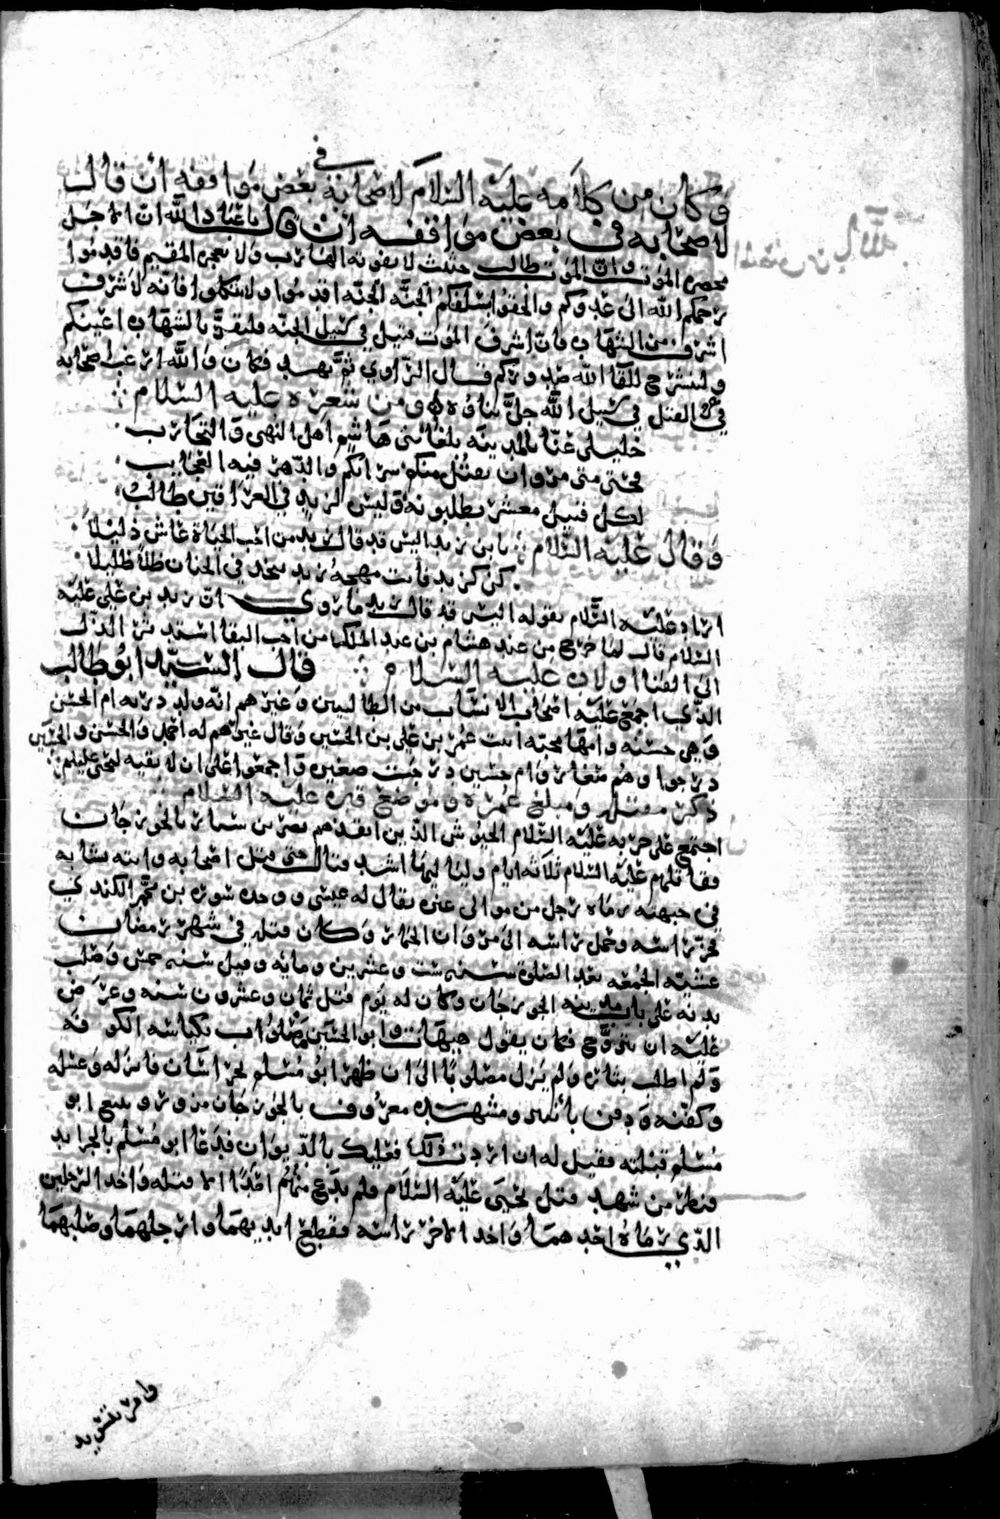 وكان من كلامه عليه السلام لاصحابه في بعض مواقفه ان قال
لاصحابه في بعض مواقفه ان قال يا عباد الله ان الاجل
محضره الموت وان الموت طالب حثيث لا يفوته الهارب ولا يعجزه المقيم فاقدموا
رحمكم الله الى عدوكم والحقوا بسلفكم الجنة الجنة اقدموا ولا تنكلوا فانه لا شرف
اشرف من الشهادة فان اشرف الموت قتل في سبيل الله الجنة فلتقر بالشهادة اعينكم
ولتنشرح للقاء الله صدوركم قال الراوي ثم نهد فكان والله ارغب اصحابه
في القتل في سبيل الله جل ثناؤه ومن شعره عليه السلام
خليلي عنا بالمدينة بلغا بني هاشم اهل النهى والتجارب
فحتى متى مروان يقتل منكم سراتكم والدهر فيه العجائب
لكل قتيل معشر يطلبونه وليس لزيد في العراقين طالب
وقال عليه السلام يا بن زيد اليس قد قال زيد من احب الحياة عاش ذليلا
كن كزيد فانت مهجة زيد تتخذ في الجنان ظلا ظليلا
اراد عليه السلام بقوله اليس قد قال زيد ما روي ان زيد بن علي عليه
السلام قال لما خرج من عند هشام بن عبد الملك من احب البقا استدثر الذل
الى الفنا اولاده عليه السلام قال السيد ابو طالب
الذي اجمع عليه اصحاب الانساب من الطالبيين وغيرهم انه ولد درية ام الحسن
وهي حسنة وامها محبة بنت عمر بن علي بن الحسين وقال غيرهم له احمد والحسن والحسين
درجوا وهم صغار وام حسين درجت صغيرة واجمعوا على ان لا بقية ليحيى عليلم
ذكر مقتله ومبلغ عمره وموضع قبره عليه السلام
اجتمع على حربه عليه السلام الجيوش الذين انفذهم نصر بن سيار بالجوزجان
فقاتلهم عليه السلام ثلاثة ايام ولياليها اشد قتال حتى قتل اصحابه واتته نشابة
في جبهته رماه رجل من موالي عنزة يقال له عيسى ووجده سورة بن محمد الكندي
فحز راسه وحمل راسه الى مروان الحمار وكان قتله في شهر رمضان
عشية الجمعة بعد الصلوة سنة ست وعشرين ومايه وقيل سنة خمس وصلب
بدنه على باب مدينة الجوزجان وكان له يوم قتل ثمان وعشرون سنة وعرض
عليه ان يتزوج فكان يقول هيهات وابو الحسين مصلوب بكناسة الكوفة
ولم اطلب بثاره ولم يزل مصلوبا الى ان ظهر ابو مسلم بخراسان فانزله وغسله
وكفنه ودفن بانبير ومشهده معروف بالجوزجان مزور وتتبع ابو
مسلم قتلته فقيل له ان اردت ذلك فعليك بالديوان فدعا ابو مسلم بالجرايد
فنظر من شهد قتل يحيى عليه السلام فلم يدع منهم احدا الا قتله واخذ الرجلين
الذي رماه احدهما واخذ الاخر راسه فقطع ايديهما وارجلهما وصلبهما
وامر بتسويد
بالله